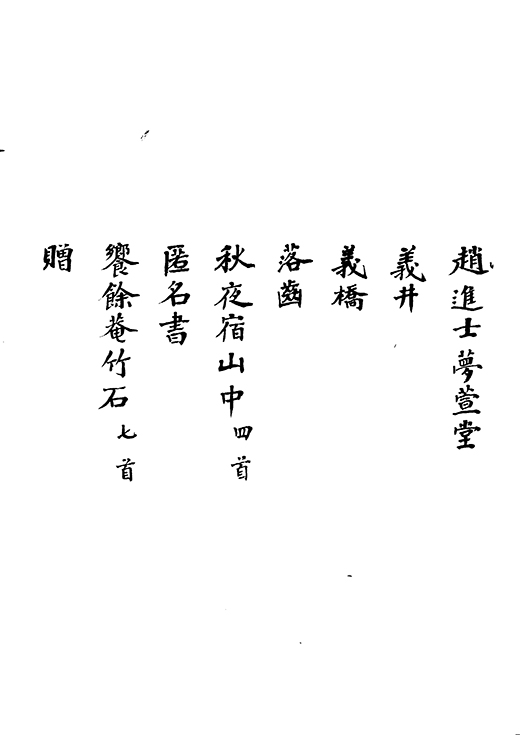 趙進士夢萱堂
義井
義橋
落齒
秋夜宿山中四首
匿名書
饗餘菴竹石七首
贈